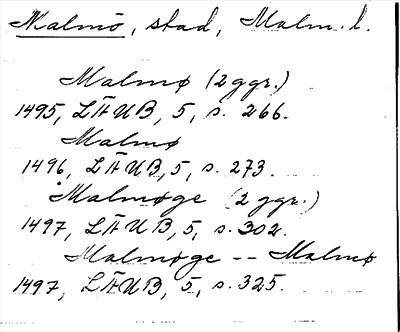 Malmö, stad, Malm. l.
Malmø (2 ggr.)
1495, LÄUB, 5, s. 266.
Malmø
1496, LÄUB, 5, s. 273.
Malmøge (2 ggr.)
1497, LÄUB, 5, s. 302.
Malmøge -- Malmø
1497, LÄUB, 5, s. 325.